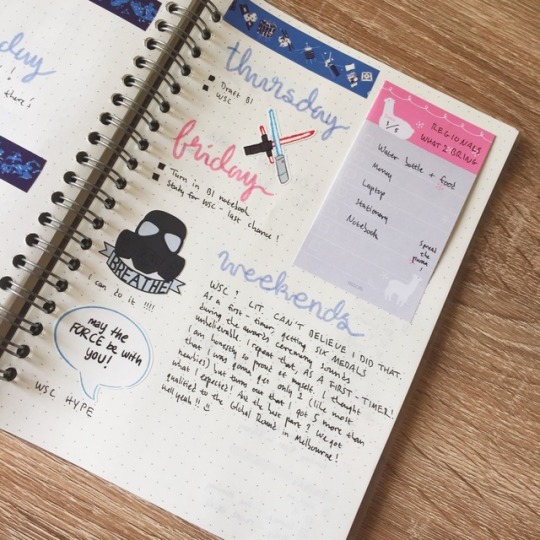 day
!
there!
thursday
Draft BI
WSC
friday
Turn in BI notebook
Study for WSC - last chance!
BREATHE
I can do it !!!!
may the
FORCE be with
you!
WSC HYPE
1/5
REGIONALS
WHAT 2 BRING
Water bottle + food
Money
Laptop
Stationery
Notebook
Spread
the
!
weekends
WSC? LIT. CAN'T BELIEVE I DID THAT.
As a first-timer, getting SIX MEDALS
during the awards ceremony sounds
unbelievable. I repeat that, AS A FIRST-TIMER!
I am honestly so proud of myself. I thought
that I was gonna get only 1 (like most
newbies) but turns out that I got 5 more than
what I expected! And the best part? We got
qualified to the Global Round in Melbourne!
Hell yeah!!